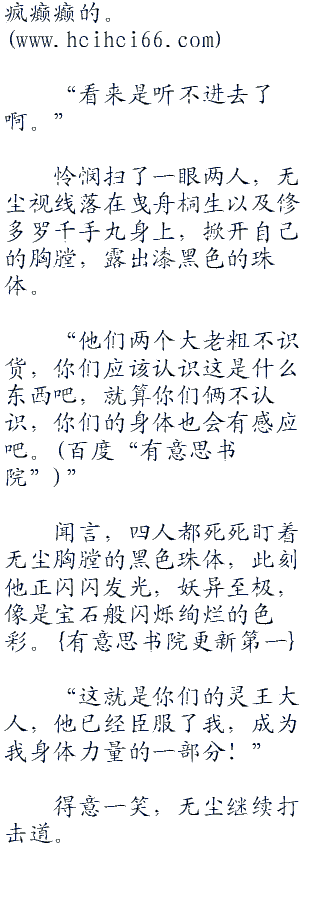 疯癫癫的。
(www.hcihci66.com)
“看来是听不进去了
啊。”
怜悯扫了一眼两人，无
尘视线落在曳舟桐生以及修
多罗千手丸身上，掀开自己
的胸膛，露出漆黑色的珠
体。
“他们两个大老粗不识
货，你们应该认识这是什么
东西吧，就算你们俩不认
识，你们的身体也会有感应
吧。(百度“有意思书
院”)”
闻言，四人都死死盯着
无尘胸膛的黑色珠体，此刻
他正闪闪发光，妖异至极，
像是宝石般闪烁绚烂的色
彩。{有意思书院更新第一}
“这就是你们的灵王大
人，他已经臣服了我，成为
我身体力量的一部分！”
得意一笑，无尘继续打
击道。